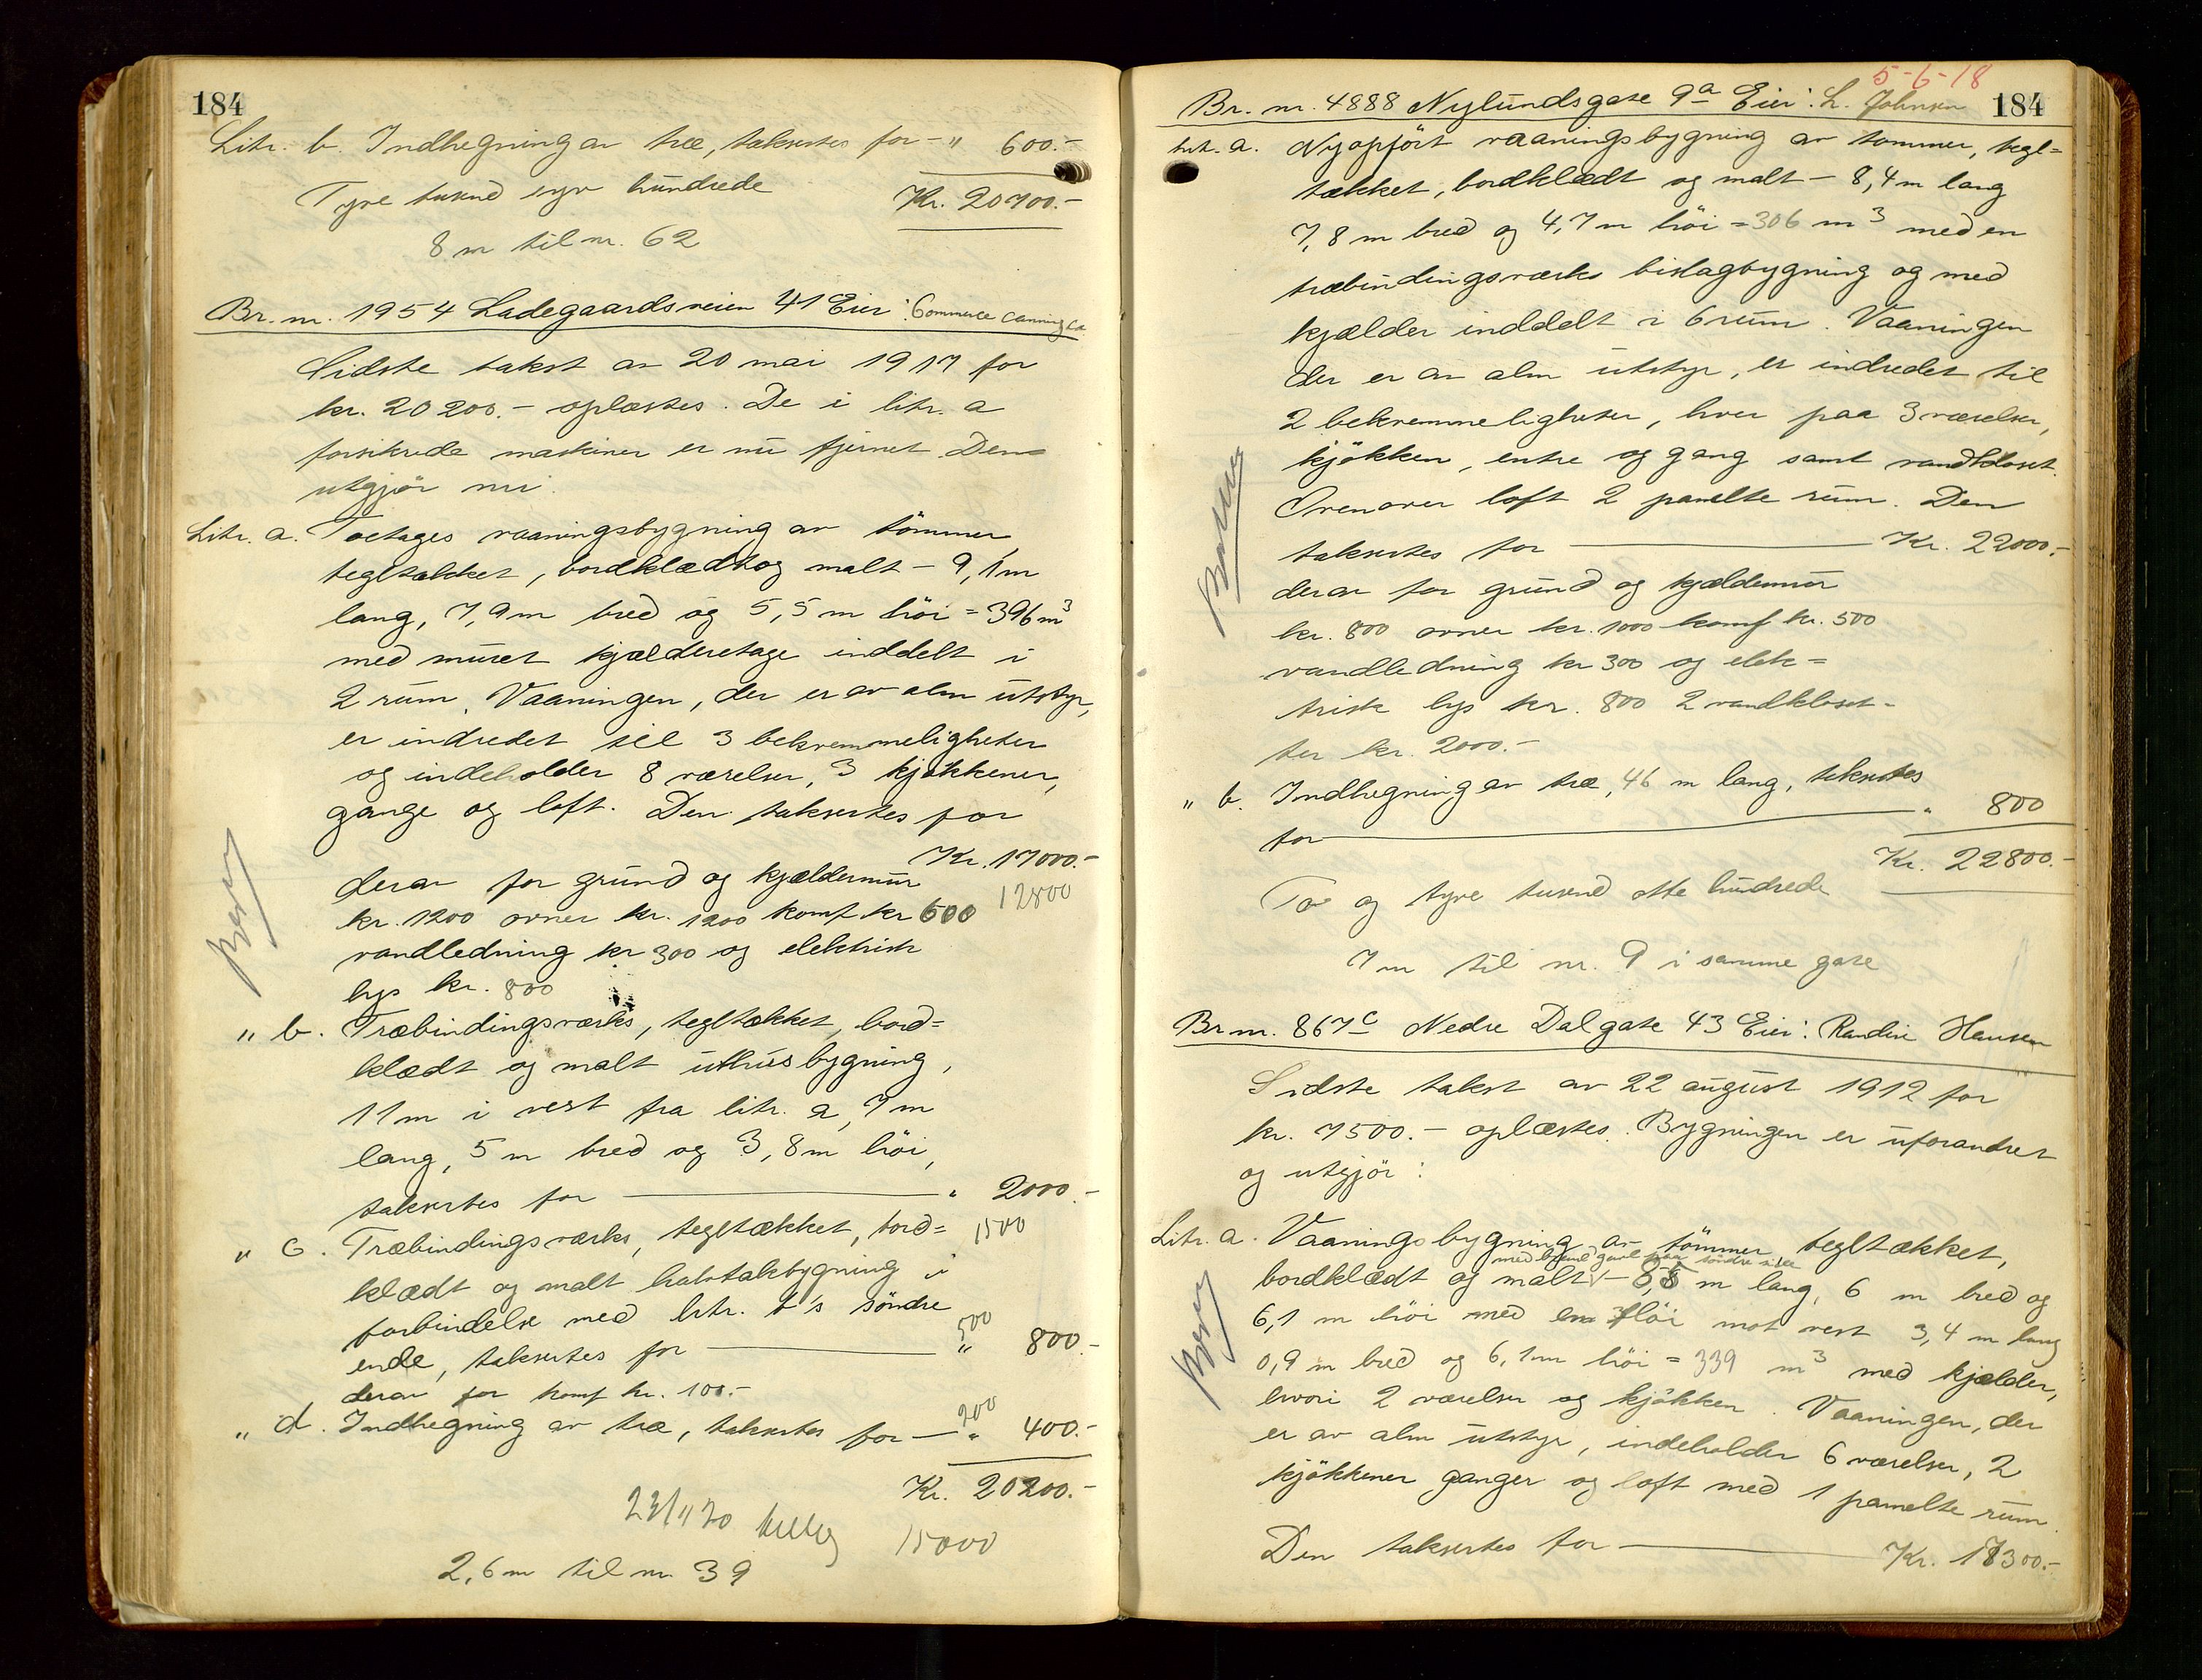 184
Litr. b. Indhegning av træ, takseres for - " 600.-
Kr. 20700.-
Tyve tusend syv hundrede
8 m til nr. 62
Br. nr. 1954 Ladegaardsveien 41 Eier: Commerce Canning Co
Sidste takst av 20 mai 1917 for
kr. 20200.- oplæstes. De i litr. a
forsikrede maskiner er nu fjernet. Den
utgjör nu:
Litr. a. Toetages vaaningsbygning av tömmer,
tegltækket, bordklædt og malt - 9,1 m
lang, 7,9 m bred og 5,5 m höi = 396 m³
med muret kjælderetage inddelt i
2 rum. Vaaningen, der er av alm utstyr,
er indredet til 3 bekvemmeligheter
og indeholder 8 værelser, 3 kjökkener,
gange og loft. Den takseres for
Kr. 17000.-
derav for grund og kjældermur
12800
kr. 1200 ovner kr. 1200 komf kr 600
vandledning kr 300 og elektrisk
lys kr. 800
" b. Træbindingsværks, tegltækket, bord=
klædt og malt uthusbygning,
11 m i vest fra litr. a, 7 m
lang, 5 m bred og 3,8 m höi,
takseres for " 2000.-
1500
" c. Træbindingsværks, tegltækket, bord=
klædt og malt halvtakbygning i
forbindelse med litr. b's söndre
500
ende, takseres for " 800.-
derav for komf kr. 100.-
200
" d. Indhegning av træ, takseres for - " 400.-
Kr. 20200.-
23/11 20 15000
2,6 m til nr. 39
5-6-18
Br. nr. 4888 Nylundsgate 9a Eier: L. Johnsen 184
Litr. a. Nyopfört vaaningsbygning av tömmer, tegl=
tækket, bordklædt og malt - 8,4 m lang
7,8 m bred og 4,7 m höi = 306 m³ med en
træbindingsværks bislagbygning og med
kjælder inddelt i 6 rum. Vaaningen
der er av alm utstyr, er indredet til
2 bekvemmeligheter, hver paa 3 værelser,
kjökken, entre og gang samt vandkloset.
Ovenover loft 2 panelte rum. Den
takseres for Kr. 22000.-
derav for grund og kjældermur
kr. 800 ovner kr. 1000 komf kr. 500
vandledning kr 300 og elek=
trisk lys kr. 800 2 vandkloset-
ter kr. 2000.-
" b. Indhegning av træ, 46 m lang, takseres
for " 800
Kr. 22800.-
To og tyve tusend otte hundrede
7 m til nr. 9 i samme gate
Br nr. 867c Nedre Dalgate 43 Eier: Randine Hansen
Sidste takst av 22 august 1912 for
kr. 7500.- oplæstes. Bygningen er uforandret
og utgjör:
Litr. a. Vaaningsbygning av tömmer, tegltækket,
med gavl paa söndre side
bordklædt og malt - 8,8 m lang, 6 m bred og
6,1 m höi med en flöi mot vest 3,4 m lang
0,9 m bred og 6,1 m höi = 339 m³ med kjælder,
hvori 2 værelser og kjökken. Vaaningen, der
er av alm utstyr, indeholder 6 værelser, 2
kjökkener ganger og loft med 1 panelte rum.
Den takseres for Kr. 18300.-